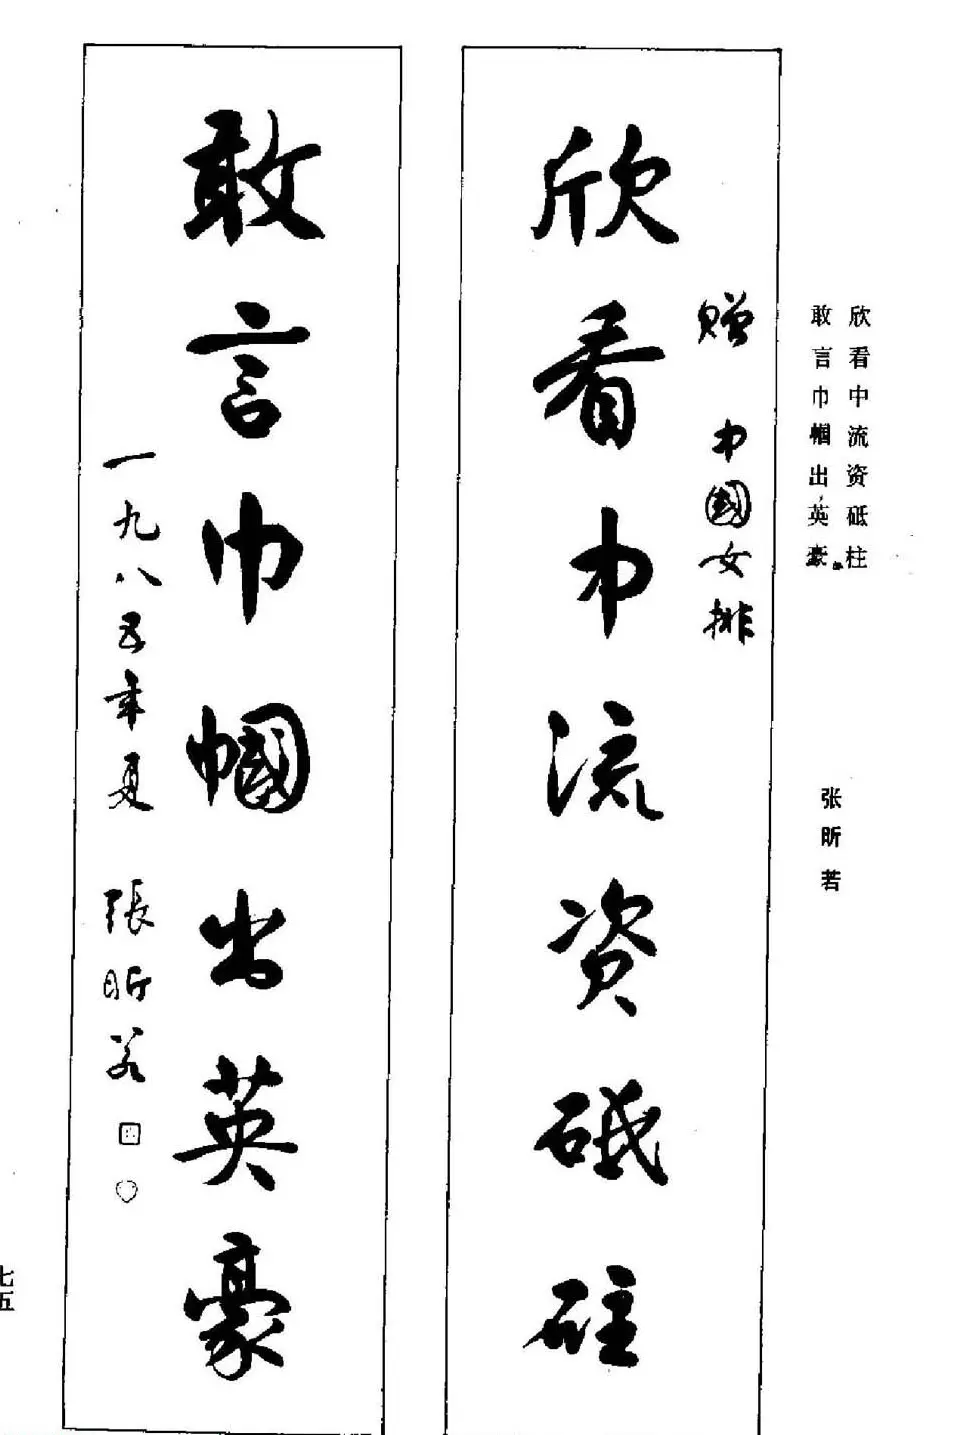 欣看中流资砥柱
敢言巾帼出英豪
张昕若
赠 中國女排
欣看中流资砥砫
敢言巾幗出英豪
一九八五年夏 張昕若
七五